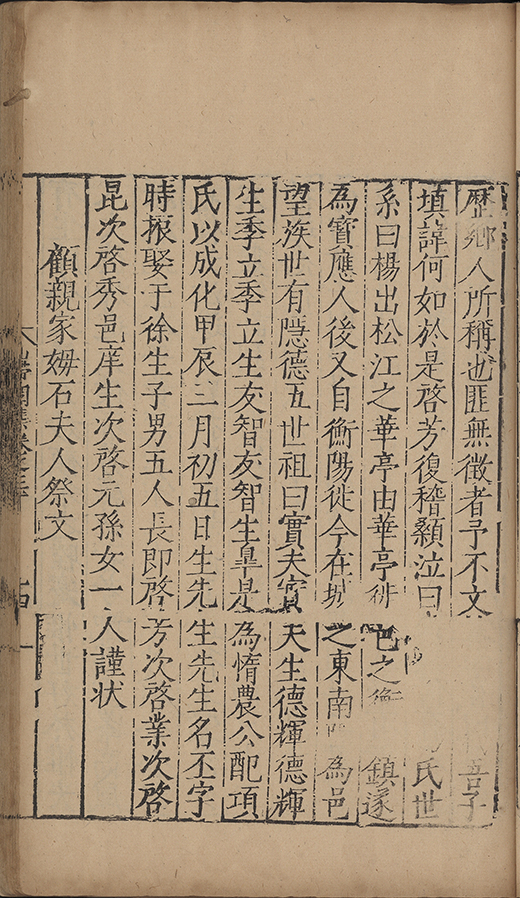 歷鄉人所稱也匪無徵者予不文吾子
填諱何如於是啓芳復稽顙泣曰氏世
系曰楊出松江之華亭由華亭徙邑之衡鎮遂
為寳應人後又自衡陽徙今在城之東南為邑
望族世有隱德五世祖曰實夫實夫生德輝德輝
生季立季立生友智友智生臯是為惰農公配項
氏以成化甲辰三月初五日生先生先生名丕字
時振娶于徐生子男五人長即啓芳次啓業次啓
昆次啓秀邑庠生次啓元孫女一人謹状
顧親家姆石夫人祭文